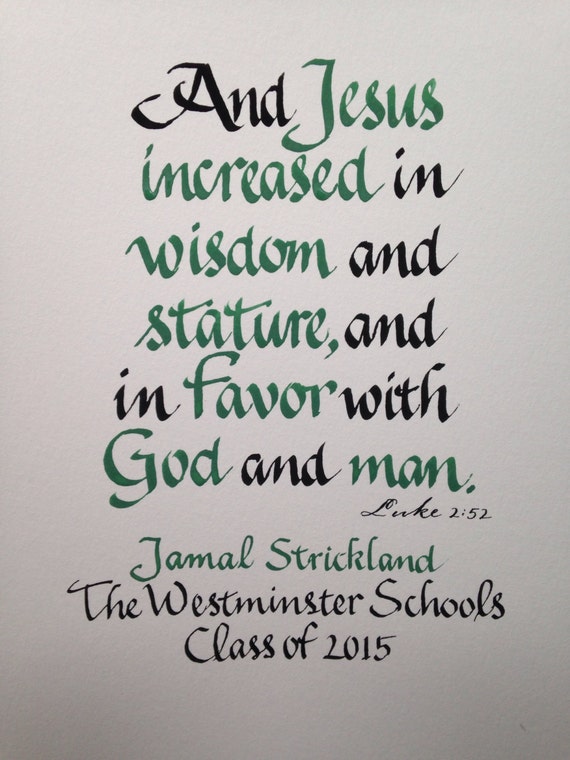 And Jesus
increased in
wisdom and
stature, and
in favor with
God and man.
Luke 2:52
Jamal Strickland
The Westminster Schools
Class of 2015